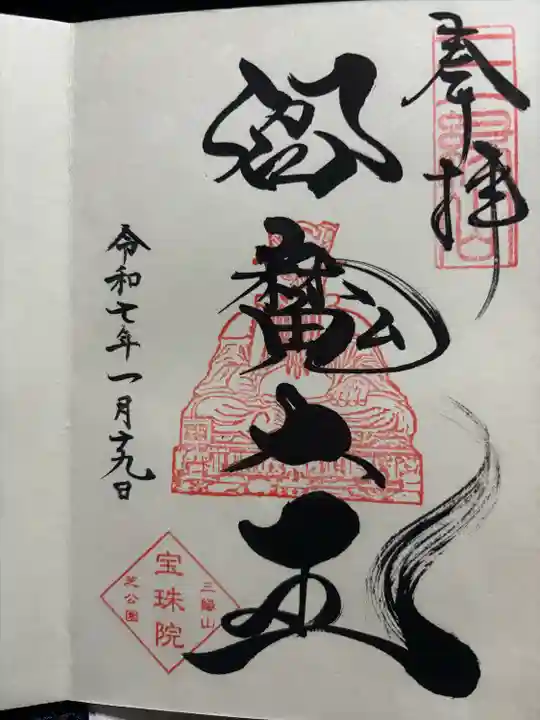 奉拝
閻魔大王
令和七年一月十九日
三縁山
宝珠院
芝公園